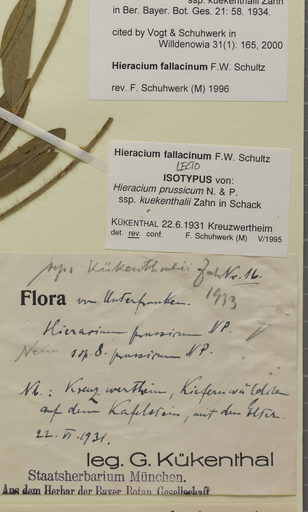 ssp. kuekenthalii Zahn
in Ber. Bayer. Bot. Ges. 21: 58. 1934.
cited by Vogt & Schuhwerk in
Willdenowia 31(1): 165, 2000
Hieracium fallacinum F.W. Schultz
rev. F. Schuhwerk (M) 1996
Hieracium fallacinum F.W. Schultz
LECTO
ISOTYPUS von:
Hieracium prussicum N. & P.
ssp. kuekenthalii Zahn in Schack
KÜKENTHAL 22.6.1931 Kreuzwertheim
det. rev. conf. F. Schuhwerk (M) V/1995
ssp. Kükenthalii Zahn Nr. 16.
1933
Flora von Unterfranken.
Hieracium prussicum NP.
Nein ssp. 8. prussicum NP.
Nb.: Kreuzwertheim, Kiefernwäldchen
auf dem Kaffelstein, mit den Eltern.
22. VI. 1931.
leg. G. Kükenthal
Staatsherbarium München.
Aus dem Herbar der Bayer. Botan. Gesellschaft